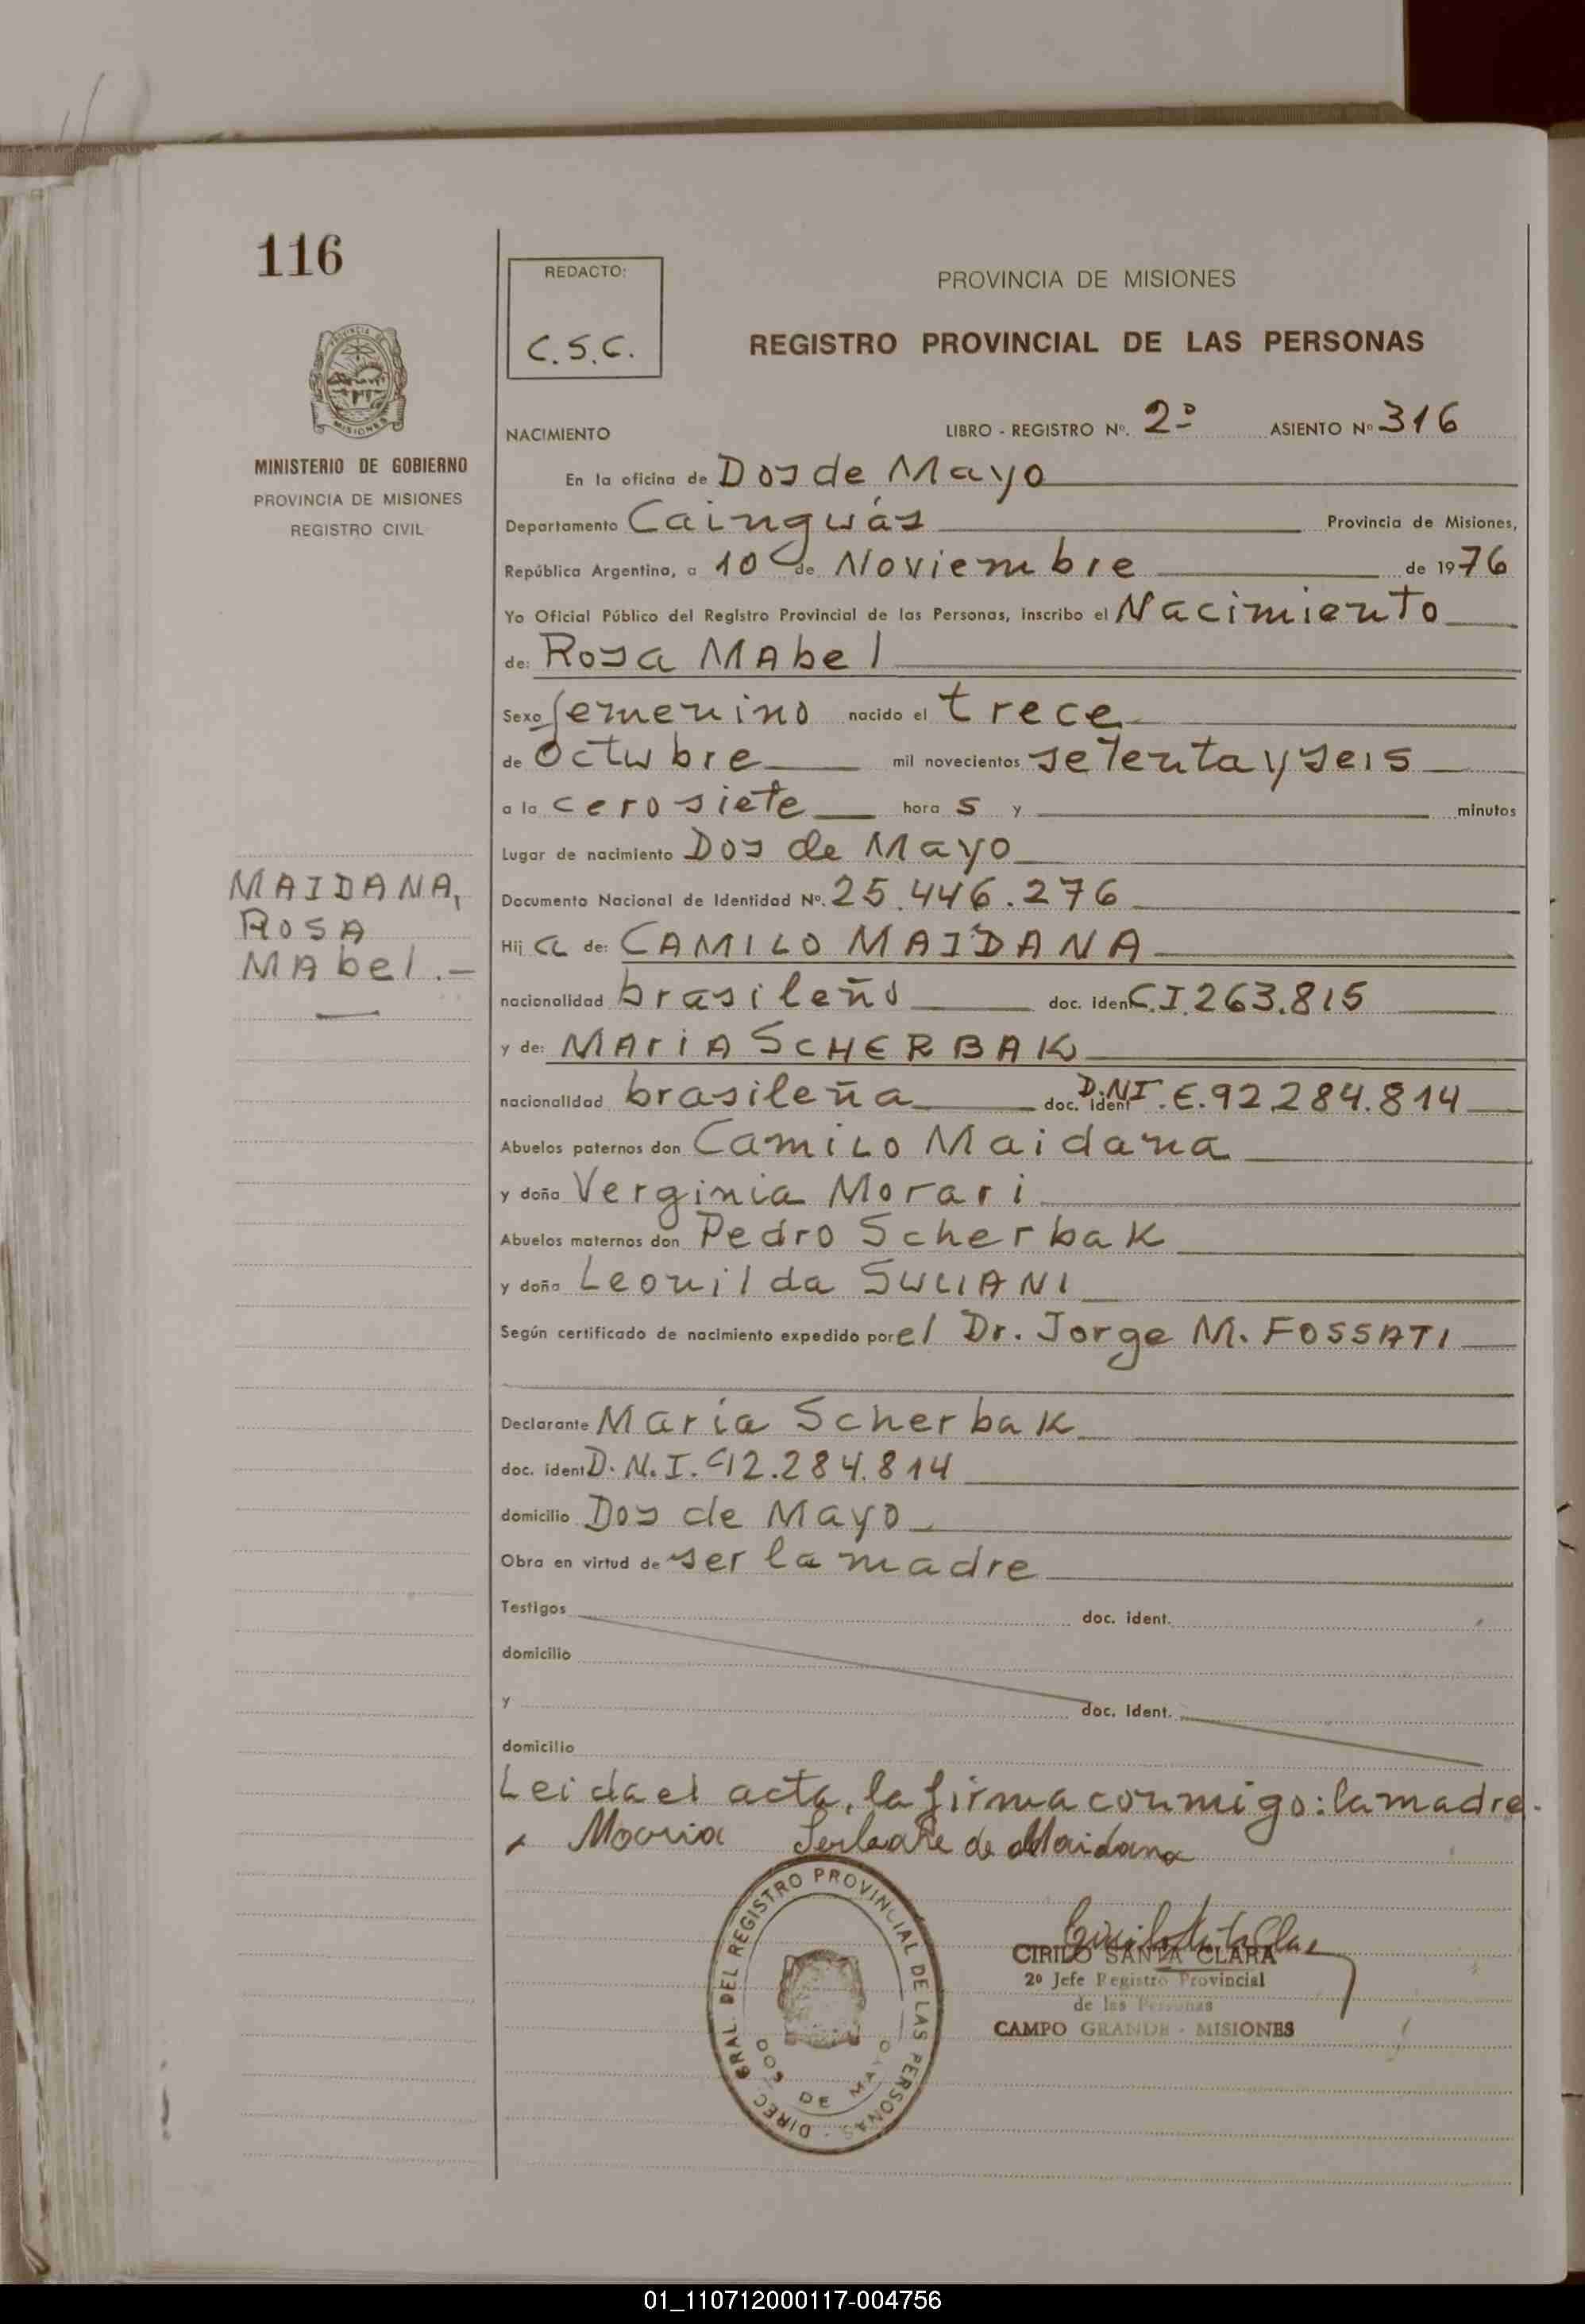 116
MINISTERIO DE GOBIERNO
PROVINCIA DE MISIONES
REGISTRO CIVIL
MAIDANA,
ROSA
MAbel.—
REDACTO:
C.S.C.
PROVINCIA DE MISIONES
REGISTRO PROVINCIAL DE LAS PERSONAS
NACIMIENTO LIBRO - REGISTRO Nº. 2º ASIENTO Nº 316
En la oficina de Dos de Mayo
Departamento Cainguás Provincia de Misiones,
República Argentina, a 10 de Noviembre de 1976
Yo Oficial Público del Registro Provincial de las Personas, inscribo el Nacimiento
de: Rosa MAbel
Sexo femenino nacido el trece
de Octubre mil novecientos setenta y seis
a la cero siete hora s y minutos
Lugar de nacimiento Dos de Mayo
Documento Nacional de Identidad Nº. 25.446.276
Hij a de: CAMILO MAIDANA
nacionalidad brasileño doc. iden C.I. 263.815
y de: MAriA SCHERBAK
nacionalidad brasileña doc. ident D.NI.E.92.284.814
Abuelos paternos don Camilo Maidana
y doña Verginia Morari
Abuelos maternos don Pedro Scherbak
y doña Leonilda SULIANI
Según certificado de nacimiento expedido por el Dr. Jorge M. FOSSATI
Declarante Maria Scherbak
doc. ident D.N.I. 92.284.814
domicilio Dos de Mayo
Obra en virtud de ser la madre
Testigos doc. ident.
domicilio
y doc. ident.
domicilio
Leida el acta, la firma conmigo: la madre.
Maria de Maidana
DIREC. GRAL. DEL REGISTRO PROVINCIAL DE LAS PERSONAS
DOS DE MAYO
CIRILO SANTA CLARA
2º Jefe Registro Provincial
de las Personas
CAMPO GRANDE - MISIONES
01_110712000117-004756